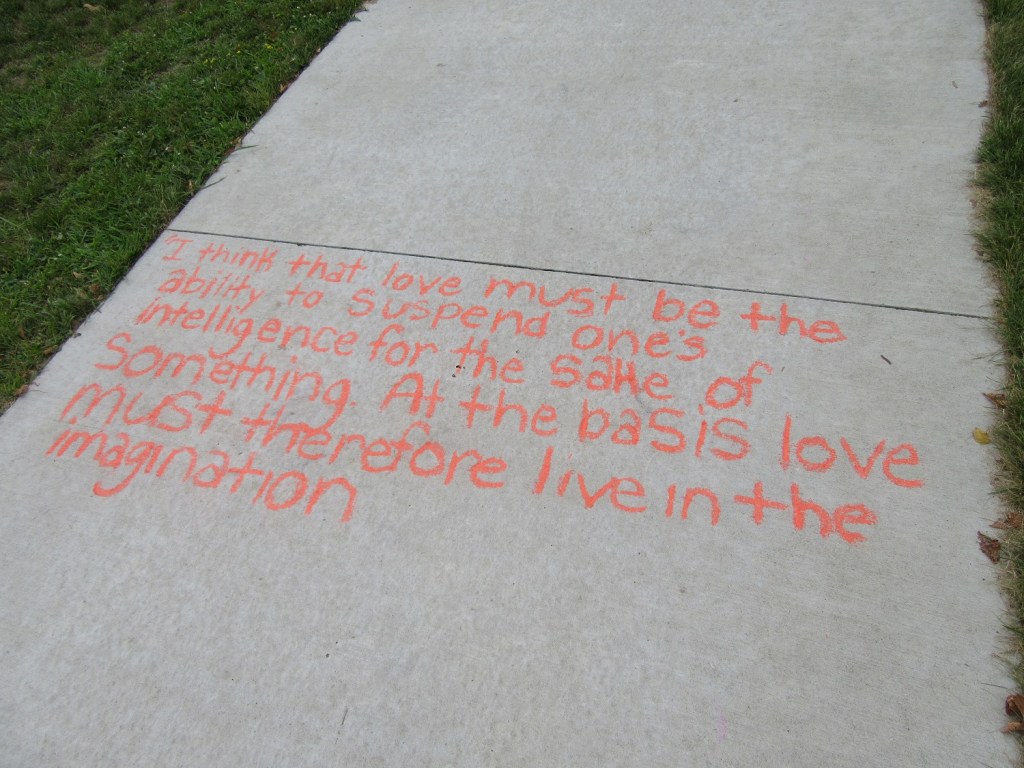 "I think that love must be the
ability to suspend one's
intelligence for the sake of
something. At the basis love
must therefore live in the
imagination